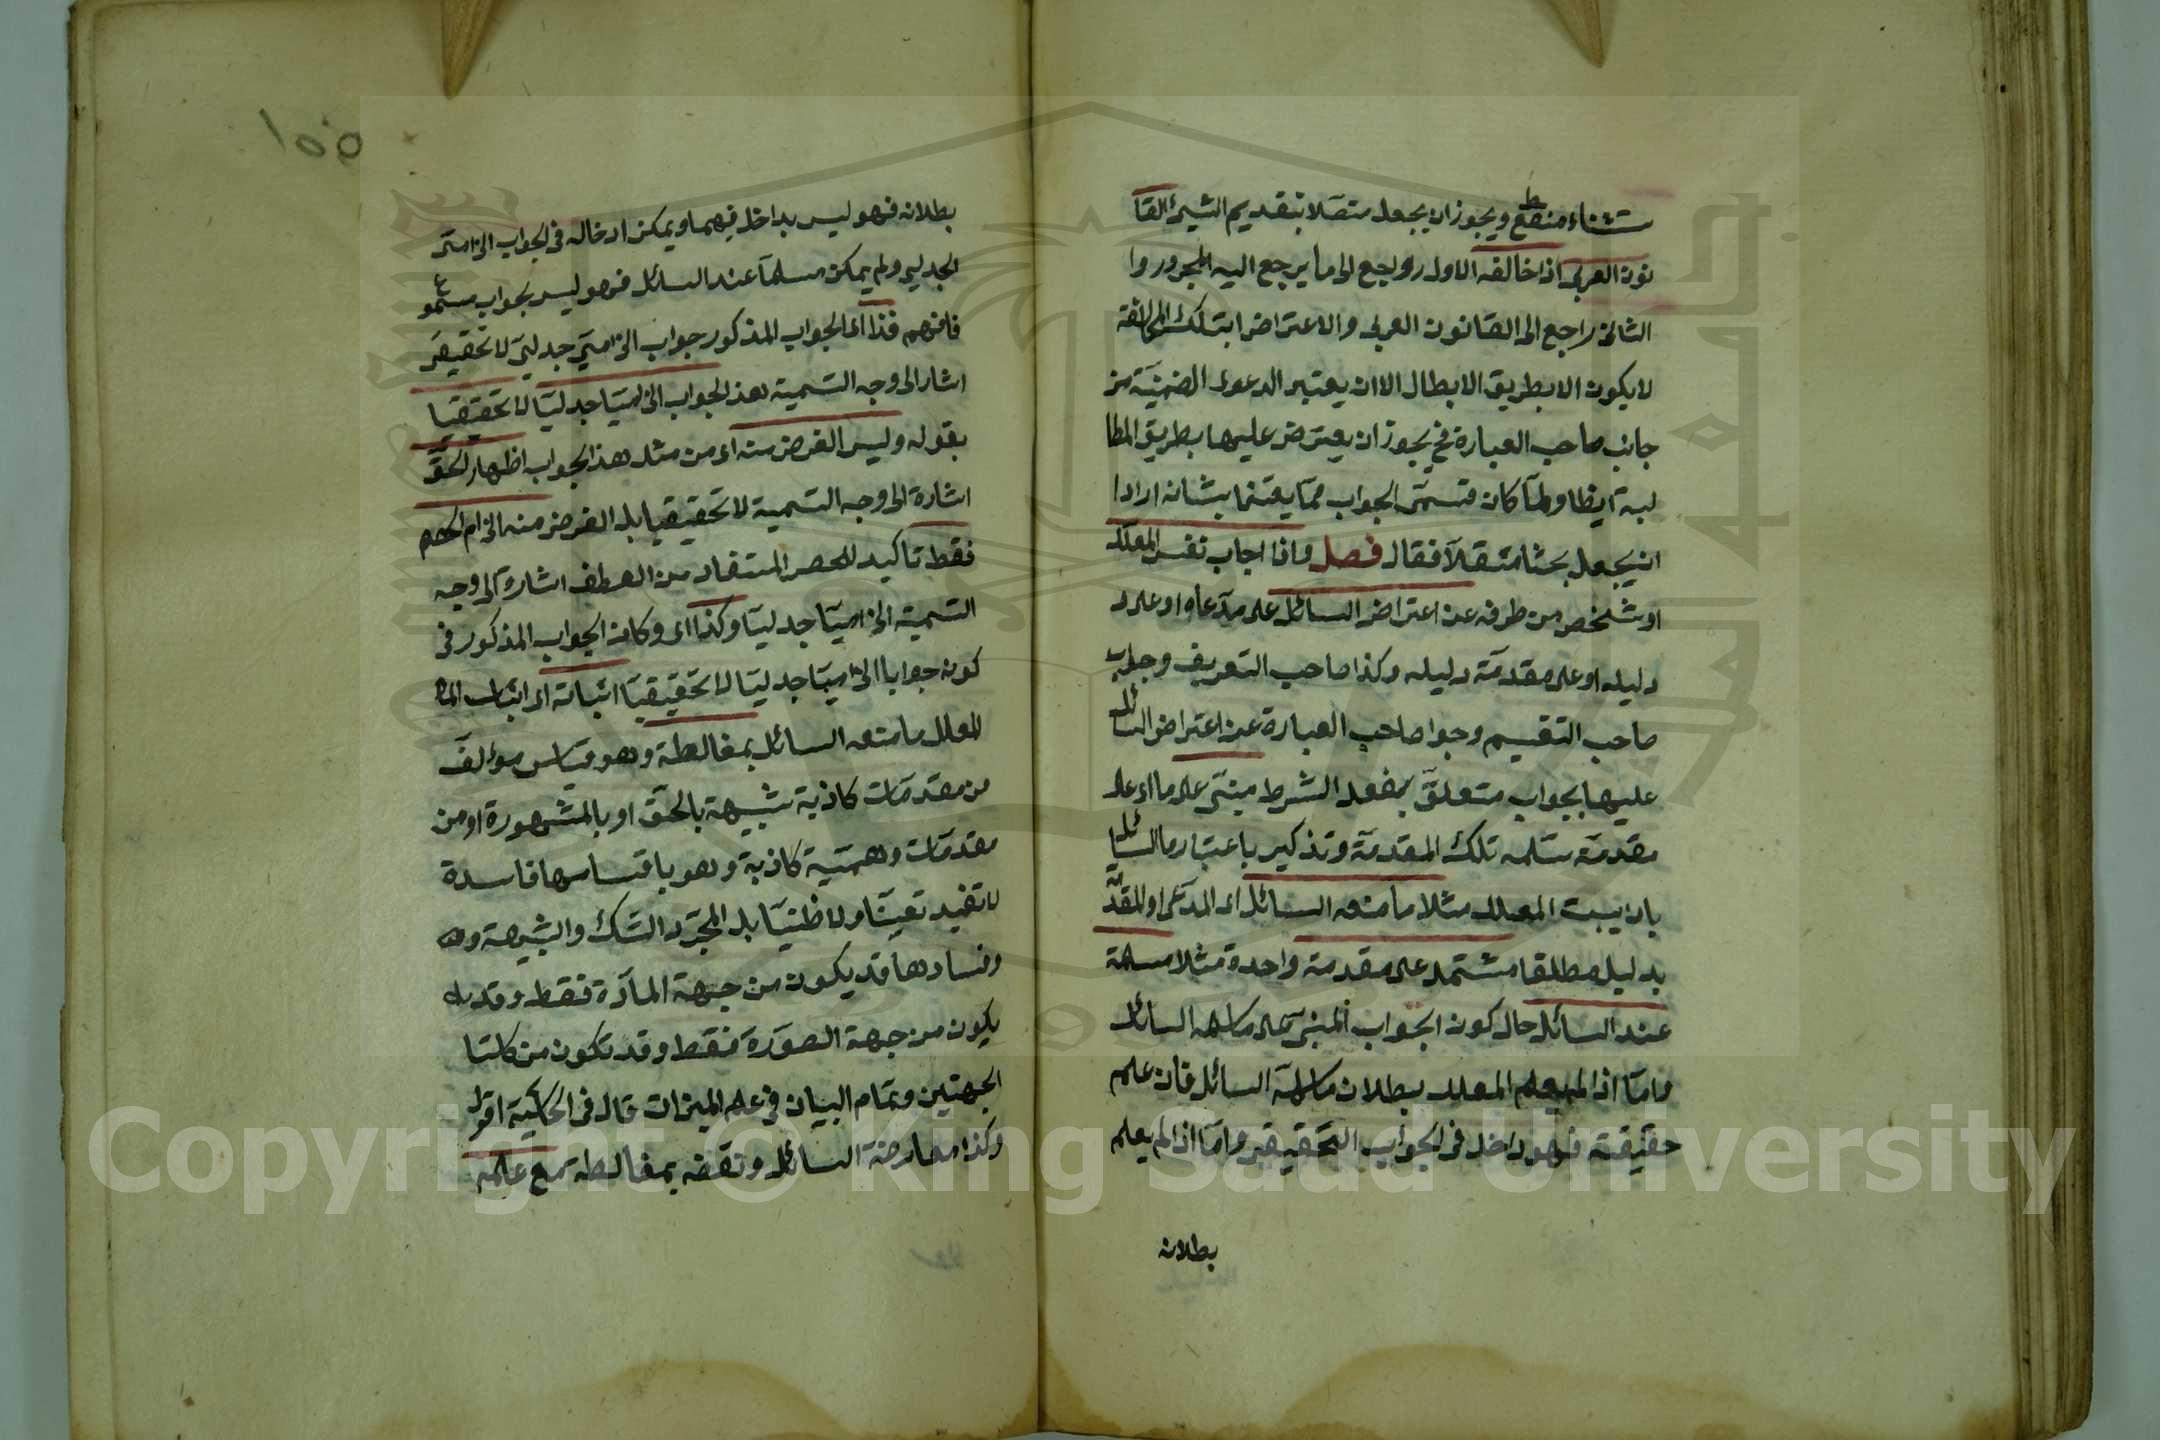 ستثناء منقطع ويجوز ان يجعل متصلا بتقديم الشيء القا
نون العربي اذا خالفه الاول راجع الى ما يرجع اليه المجرور وا
الثاني راجع الى القانون العربي والاعتراض ابتلك المخالفة
لا يكون الا بطريق الابطال الا ان يعتبر الدعوى الضمنية من
جانب صاحب العبارة فح يجوز ان يعترض عليها بطريق المطا
لبة ايظا ولما كان قسمى الجواب مما يعتنا بشانه ارادا
ان يجعل بحثا مستقلا فقال فصل واذا اجاب نفس المعلل
او شخص من طرفه عن اعتراض السائل على مدعاه او على د
دليله او على مقدمة دليله وكذا صاحب التعريف وجاب
صاحب التقسيم وجوا صاحب العبارة عن اعتراض السائل
عليها بجواب متعلق بفعل الشرط مبنى على ما اى على
مقدمة سلمه تلك المقدمة وتذكير باعتبار ما السائل
بان يثبت المعلل مثلا ما منعه السائل اى المدعى او المقدمة
بدليل مطلقا مشتمل على مقدمة واحدة مثلا مسلمة
عند السائل حال كون الجواب المبنى على ما سلمه السائل
واما اذا لم يعلم المعلل بطلان ما سلمه السائل فان علم
حقيقته فهو داخل في الجواب التحقيقى واما اذا لم يعلم
بطلانه
١٥٥
بطلانه فهو ليس بداخل فيهما ويمكن ادخاله في الجواب الالزامى
الجدلي ولم يمكن مسلما عند السائل فهو ليس بجواب مسموع
فافهم فذا اى الجواب المذكور جواب الزامى جدلي لا تحقيقى
اشار الى وجه التسمية هذ الجواب الزاميا جدليا لا تحقيقيا
بقوله وليس الغرض منه اى من مثل هذ الجواب اظهار الحق
اشارة الى وجه التسمية لا تحقيقيا بل الغرض منه الزام الخصم
فقط تاكيد للحصر المستفاد من العطف اشارة الى وجه
التسمية الزاميا جدليا وكذا اى وكان الجواب المذكور في
كونه جوابا الزاميا جدليا لا تحقيقيا اثباته اى اثبات
المعلل ما منعه السائل بمغالطة وهو قياس مؤلف
من مقدمات كاذبة شبيهة بالحق او بالمشهورة او من
مقدمات وهمية كاذبة وهو باقسامها فاسدة
لا تفيد يقينا ولا ظنيا بل المجرد الشك والشبهة وهى
وفسادها قد يكون من جهة المادة فقط وقد
يكون من جهة الصورة فقط وقد تكون من كلتا
الجهتين وتمام البيان في علم الميزان قال في الحاشية اقول
وكذا معارضة السائل ونقضه بمغالطة مع علمه
Copyright © King Saud University